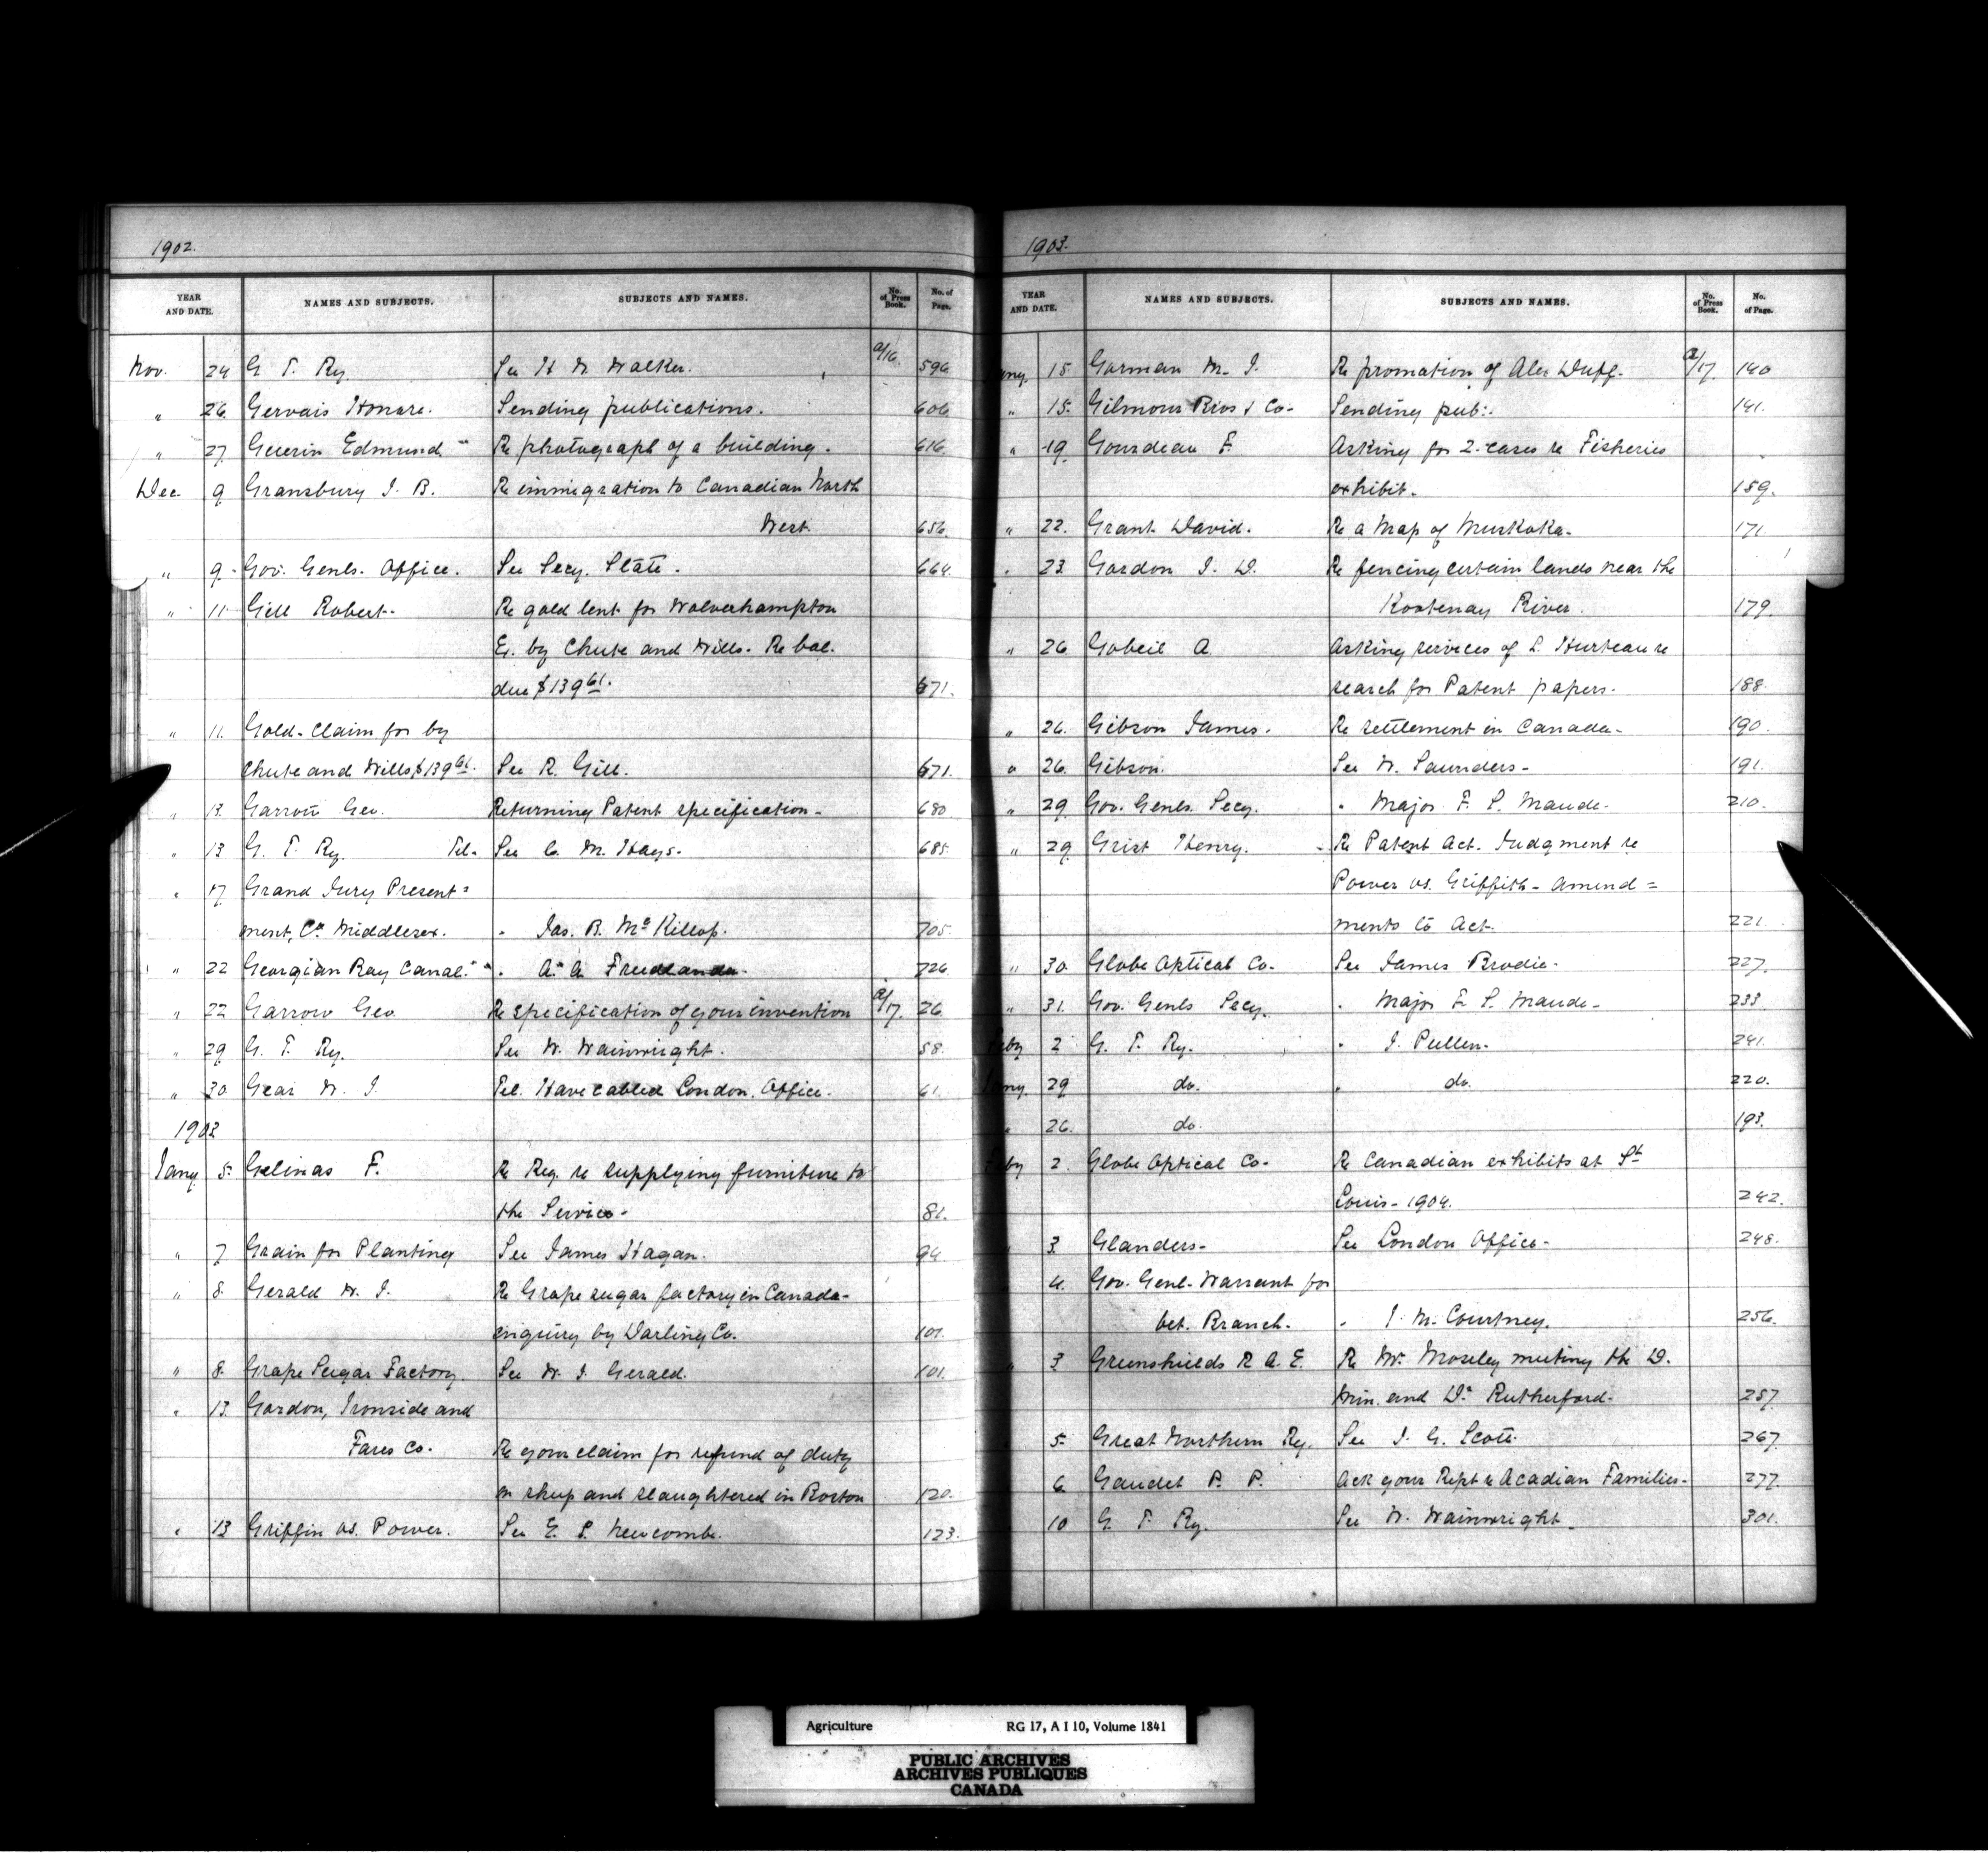 1902.
YEAR AND DATE. NAMES AND SUBJECTS. SUBJECTS AND NAMES. No. of Press Book. No. of Page.
Nov. 24 G. T. Ry. See H W Walker. a/16. 596
" 26. Gervais Honore. Sending publications. 606
" 27. Guerin Edmund Re photograph of a building. 616
Dec. 9 Gransbury J. B. Re immigration to Canadian North
West. 656.
" 9 Gov. Genls. Office. See Secy. State. 664.
" 11 Gill Robert. Re gold lent for Wolverhampton
Ex. by Chute and Wills. Re bal.
due $139 61. 671.
" 11. Gold-Claim for by
Chute and Wills $139 61. See R. Gill. 671.
" 13. Garrow Geo. Returning Patent specification. 680
" 13 G. T. Ry. Tel. See C. M. Hays. 685.
" 17 Grand Jury Present=
ment, Co. Middlesex. " Jas. B. McKillop. 705.
" 22 Georgian Bay Canal. " A. A. 726.
" 22 Garrow Geo. Re specification of your invention a/17. 26
" 29 G. T. Ry. See W. Wainwright. 58.
" 30 Gear W. J. Tel. Have cabled London, Office. 61.
1903
Jany. 5. Gelinas F. Re Reg. re supplying furniture to
the Service. 81.
" 7. Grain for Planting See James Hagan. 94
" 8. Gerald W. J. Re Grape sugar factory in Canada-
enquiry by Darling Co. 101.
" 8. Grape Sugar Factory. See W. J. Gerald. 101.
" 13. Gordon, Ironside and
Fares Co. Re your claim for refund of duty
on sheep and slaughtered in Boston 120.
" 13 Griffin vs. Power. See E. L. Newcombe. 123.
1903.
YEAR AND DATE. NAMES AND SUBJECTS. SUBJECTS AND NAMES. No. of Press Book. No. of Page.
ny. 15. Gorman M. J. Re promation of Alex Duff. a/17. 140
" 15. Gilmour Bros & Co. Sending pub:. 141.
" 19. Gourdeau F. Asking for 2-cases re Fisheries
exhibit. 159.
" 22. Grant David. Re a Map of Muskoka. 171.
" 23. Gordon J. D. Re fencing certain lands near the
Kootenay River. 179.
" 26 Gobeil A. Asking services of L. Hurteau re
search for Patent papers. 188.
" 26. Gibson James. Re settlement in Canada. 190.
" 26. Gibson. See W. Saunders. 191.
" 29. Gov. Genls. Secy. " Major F. S. Maude. 210.
" 29 Grist Henry. Re Patent Act. Judgment re
Power vs. Griffith - amend=
ments to Act. 221.
" 30. Globe Optical Co. See James Brodie. 227.
" 31. Gov. Genls Secy. " Major F. S. Maude. 233
by 2 G. T. Ry. " J. Pullen. 241.
ny. 29 do. " do. 220.
" 26. do. 193.
by 2. Globe Optical Co. Re Canadian exhibits at St
Louis - 1904. 242.
3 Glanders. See London Office. 248.
4. Gov. Genl. Warrant for
Vet. Branch. " J. M. Courtney. 256.
" 3 Greenshields R A. E. Re Mr. Moseley meeting the D.
Min. and Dr. Rutherford. 257.
5. Great Northern Ry. See J. G. Scott. 267.
6 Gaudet P. P. Ack your Rept re Acadian Families. 277.
10 G. T. Ry. See W. Wainwright. 301.
Agriculture RG 17, A I 10, Volume 1841
PUBLIC ARCHIVES
ARCHIVES PUBLIQUES
CANADA